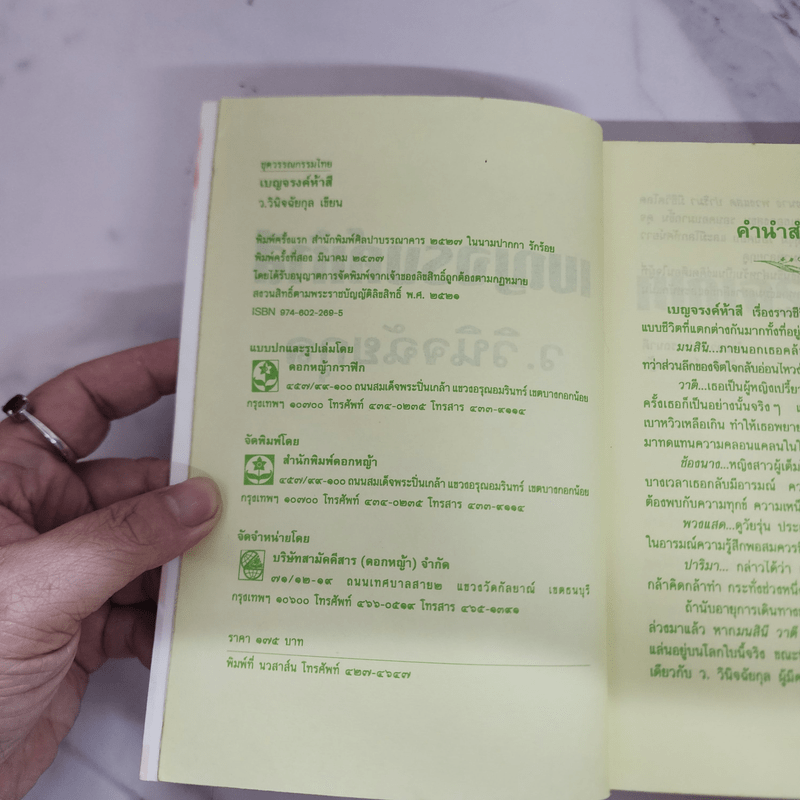 ชุดวรรณกรรมไทย
เบญจรงค์ห้าสี
ว.วินิจฉัยกุล เขียน
พิมพ์ครั้งแรก สำนักพิมพ์ศิลปาบรรณาคาร ๒๕๒๗ ในนามปากกา รักร้อย
พิมพ์ครั้งที่สอง มีนาคม ๒๕๓๗
โดยได้รับอนุญาตการจัดพิมพ์จากเจ้าของลิขสิทธิ์ถูกต้องตามกฎหมาย
สงวนสิทธิ์ตามพระราชบัญญัติลิขสิทธิ์ พ.ศ. ๒๕๒๑
ISBN 974-602-269-5
แบบปกและรูปเล่มโดย
ดอกหญ้ากราฟิก
๔๕๗/๙๙-๑๐๐ ถนนสมเด็จพระปิ่นเกล้า แขวงอรุณอมรินทร์ เขตบางกอกน้อย
กรุงเทพฯ ๑๐๗๐๐ โทรศัพท์ ๔๓๔-๐๒๓๕ โทรสาร ๔๓๓-๙๑๑๔
จัดพิมพ์โดย
สำนักพิมพ์ดอกหญ้า
๔๕๗/๙๙-๑๐๐ ถนนสมเด็จพระปิ่นเกล้า แขวงอรุณอมรินทร์ เขตบางกอกน้อย
กรุงเทพฯ ๑๐๗๐๐ โทรศัพท์ ๔๓๔-๐๒๓๕ โทรสาร ๔๓๓-๙๑๑๔
จัดจำหน่ายโดย
บริษัทสามัคคีสาร (ดอกหญ้า) จำกัด
๗๑/๑๒-๑๙ ถนนเทศบาลสาย๒ แขวงวัดกัลยาณ์ เขตธนบุรี
กรุงเทพฯ ๑๐๖๐๐ โทรศัพท์ ๔๖๖-๐๕๑๙ โทรสาร ๔๖๕-๑๓๙๑
ราคา ๑๗๕ บาท
พิมพ์ที่ นวสาส์น โทรศัพท์ ๔๒๗-๔๖๔๗
คำนำสำ
เบญจรงค์ห้าสี เรื่องราวชี
แบบชีวิตที่แตกต่างกันมากทั้งที่อยู่
มนสินี...ภายนอกเธอคล้
ทว่าส่วนลึกของจิตใจกลับอ่อนไหว
วาตี...เธอเป็นผู้หญิงเปรี้ย
ครั้งเธอก็เป็นอย่างนั้นจริงๆ แ
เบาหวิวเหลือเกิน ทำให้เธอพยาย
มาทดแทนความคลอนแคลนใน
ช้องนาง...หญิงสาวผู้เต็ม
บางเวลาเธอกลับมีอารมณ์ คว
ต้องพบกับความทุกข์ ความเหนื
พวงแสด...ดูวัยรุ่น ประ
ในอารมณ์ความรู้สึกพอสมควรที
ปาริมา... กล่าวได้ว่า
กล้าคิดกล้าทำ กระทั่งช่วงหนึ่
ถ้านับอายุการเดินทางข
ล่วงมาแล้ว หากมนสินี วาตี
แล่นอยู่บนโลกใบนี้จริง ขณะ
เดียวกับ ว. วินิจฉัยกุล ผู้มี